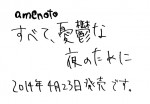 amenoto
すべて、憂鬱な
夜のために
2014年4月23日発売です。